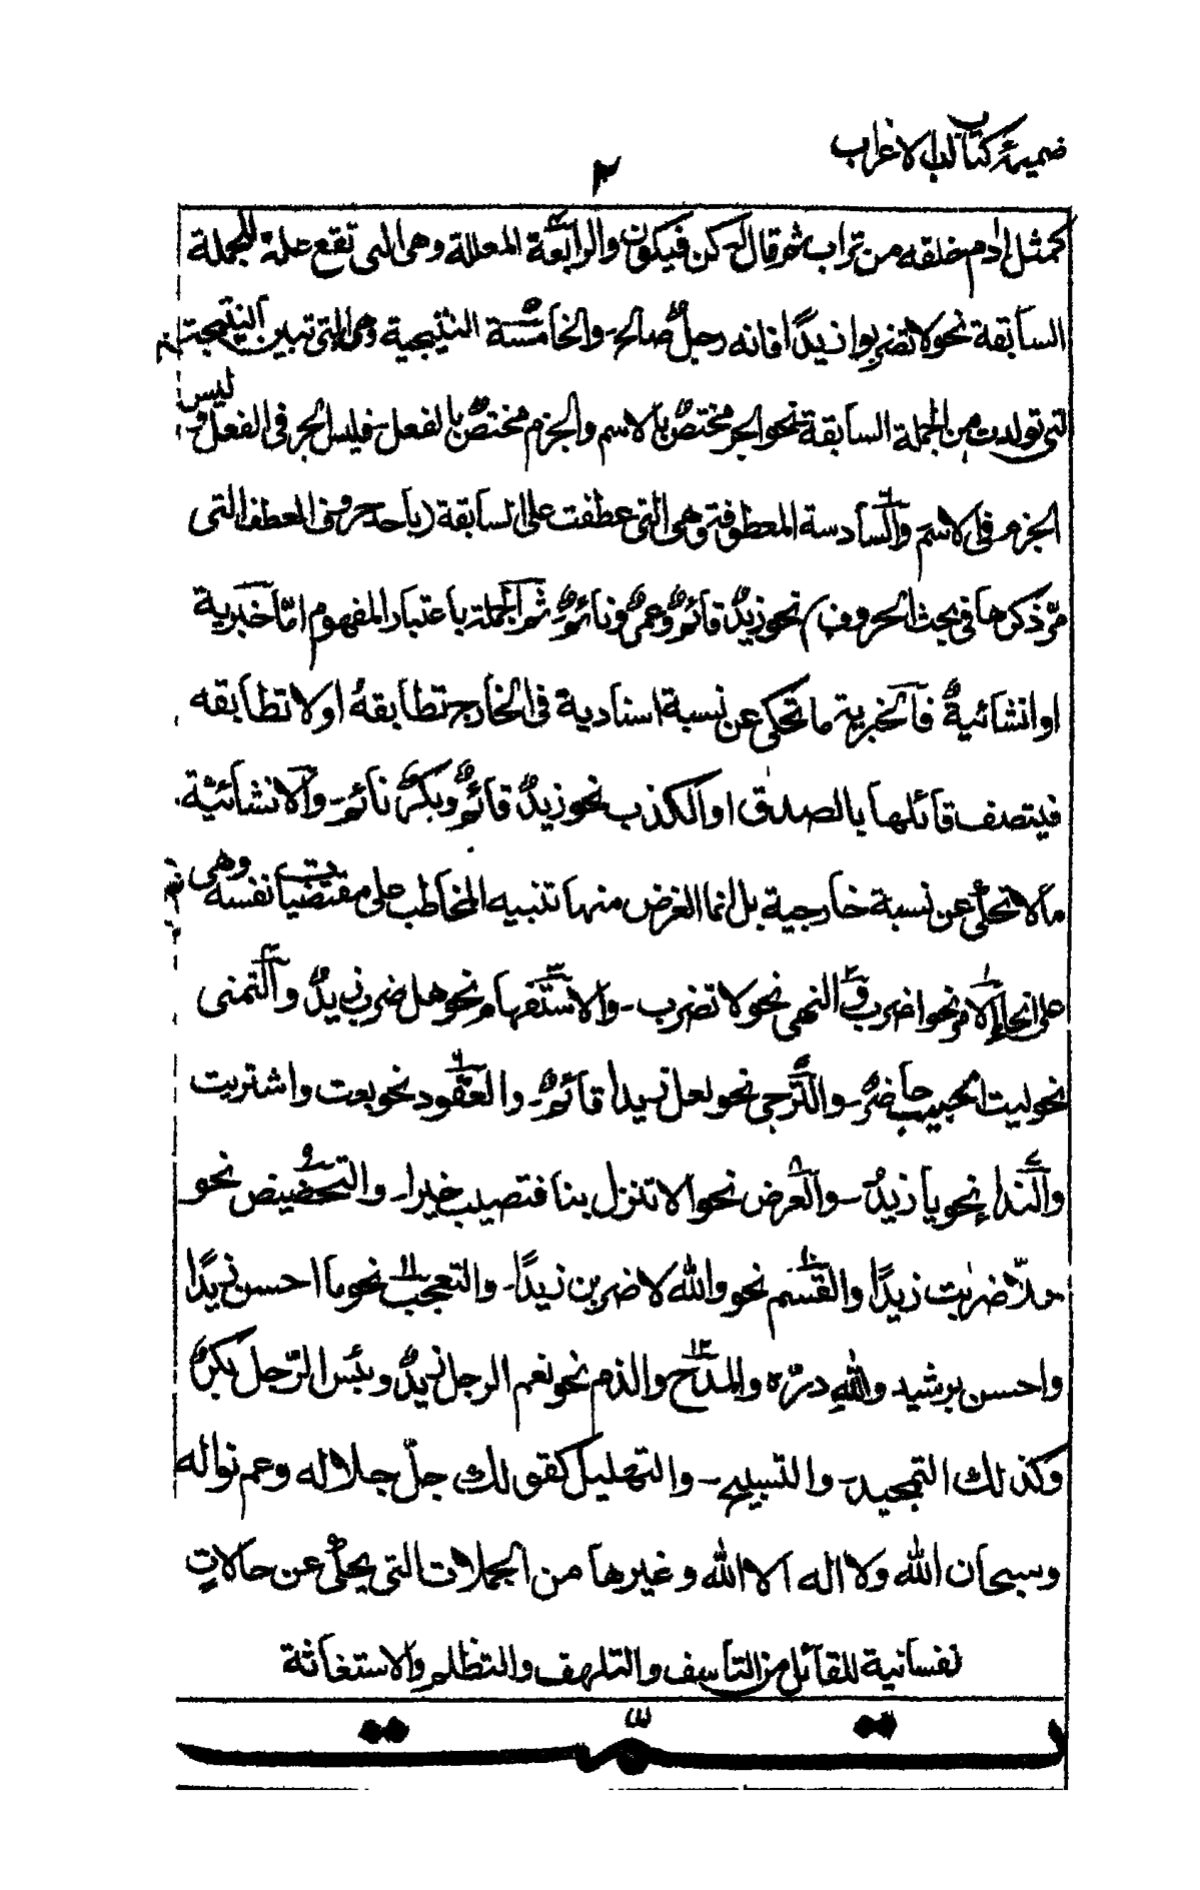 ضميمهٔ كتاب لباب الاعراب
٢
كمثل ادم خلقه من تراب ثم قال له كن فيكون والرابعة المعللة وهى التى تقع علة للجملة
السابقة نحو لا تضربوا زيدًا فانه رجلٌ صالح۔ والخامسة النتيجية وهى التى تبين النتيجة
التى تولدت من الجملة السابقة نحو الجر مختصٌ بالاسم والجزم مختصٌ بالفعل۔ فليس الجر فى الفعل و ليس
الجزم فى الاسم والسادسة المعطوفة وهى التى عطفت على السابقة (باحد حروف العطف التى
مرّ ذكرها فى بحث الحروف) نحو زيدٌ قائمٌ وعمرٌو نائمٌ۔ ثم الجملة باعتبار المفهوم امّا خبرية
او انشائيةٌ فالخبرية ما تحكى عن نسبة اسنادية فى الخارج تطابقهُ او لا تطابقه
فيتصف قائلها بالصدق او الكذب نحو زيدٌ قائمٌ وبكرٌ نائم۔ والانشائيّة
ما لا تحكى عن نسبة خارجية بل انما الغرض منها تنبيه المخاطب على مقتضيات نفسه وهى
على انحاء الامر نحو اضرب و النهى نحو لا تضرب۔ والاستفهام نحو هل ضرب زيدٌ والتمنى
نحو ليت الحبيب حاضرٌ۔ والترجى نحو لعل زيدا قائمٌ۔ والعقود نحو بعت واشتريت
والنداء نحو يا زيدُ۔ والعرض نحو الا تنزل بنا فتصيب خيرا۔ والتحضيض نحو
هلّا ضربت زيدًا والقسم نحو والله لاضربن زيدًا۔ والتعجب نحو ما احسن زيدًا
واحسن برشيد ولله درّه والمدح والذم نحو نعم الرجل زيدٌ وبئس الرّجل بكرٌ
وكذلك التمجيد۔ والتسبيح۔ والتهليل كقولك جلّ جلاله وعم نواله
وسبحان الله ولا اله الا الله وغيرها من الجملات التى يحكى عن حالاتٍ
نفسانية للقائل من التأسف والتلهف والتظلم والاستغاثة
تمّت